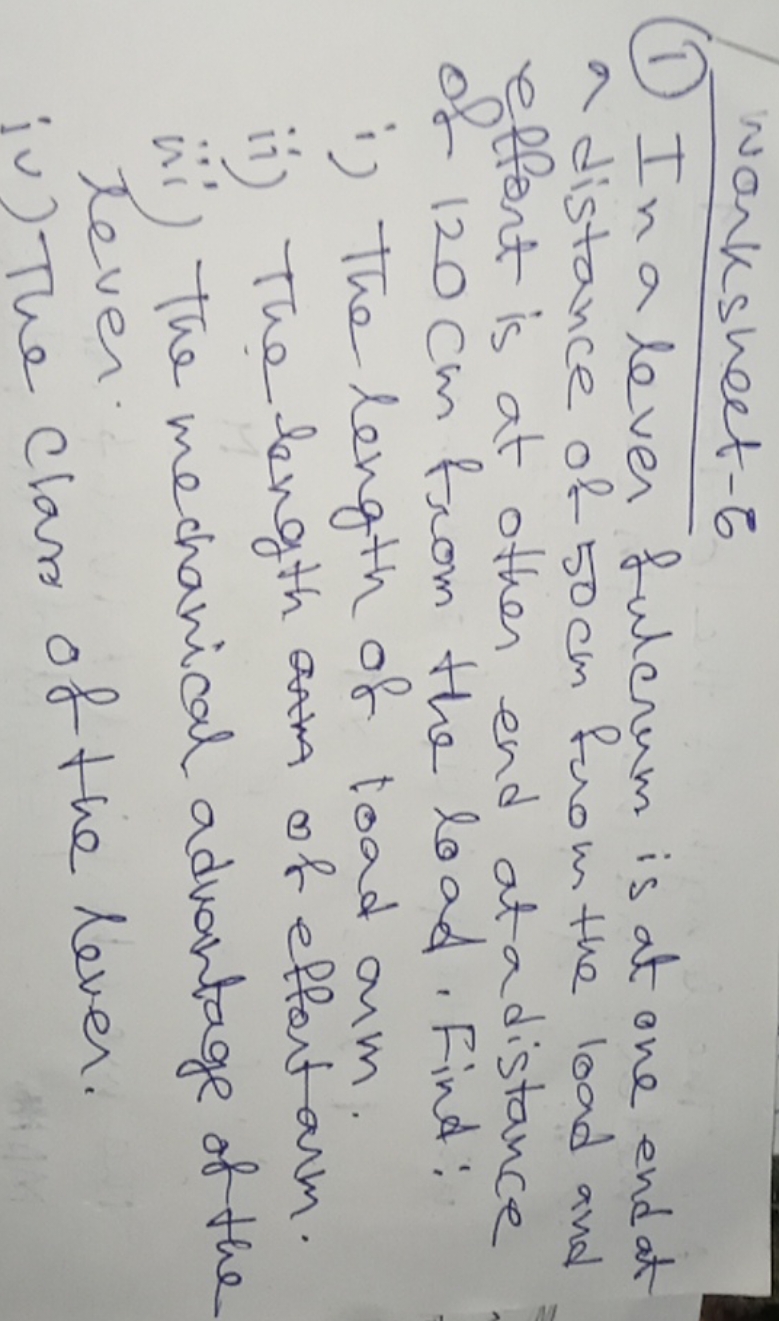 Worksheet-6
① In a lever fulcrum is at one end at
a distance of 50cm from the load and
effort is at other end at a distance
of 120 cm from the load. Find:
i) The length of load arm.
ii) The length arm of effort arm.
iii) The mechanical advantage of the
lever.
iv) The Class of the lever.